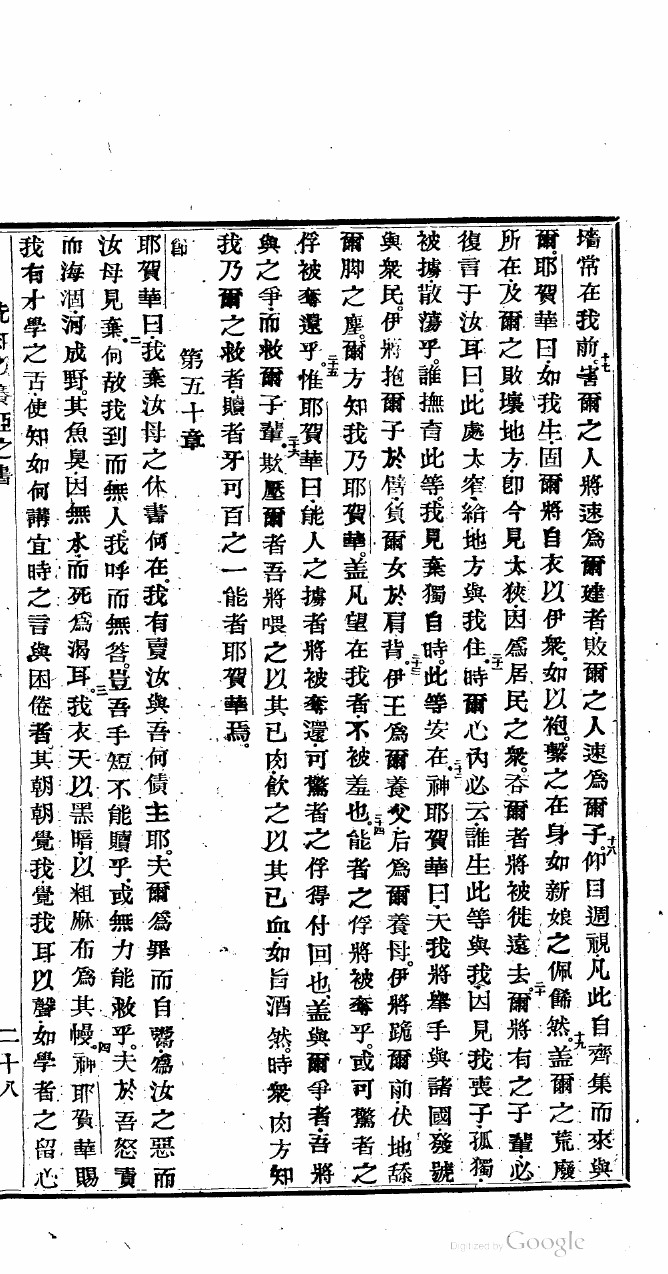 墻常在我前。十七害爾之人將速爲爾建者敗爾之人速爲爾子。十八仰目週視凡此自齊集而來與
爾耶賀華曰如我生固爾將自衣以伊衆如以袍繫之在身如新娘之佩餙然。十九盖爾之荒廢
所在及爾之敗壞地方卽今見太狹因爲居民之衆吞爾者將被徙遠去。二十爾將有之子輩必
復言于汝耳曰此處太窄給地方與我住。二十一時爾心內必云誰生此等與我因見我喪子孤獨
被擄散蕩乎誰撫育此等我見棄獨自時此等安在。二十二神耶賀華曰天我將舉手與諸國發號
與衆民伊將抱爾子於臂負爾女於肩背。二十三伊王爲爾養父后爲爾養母伊將跪爾前伏地舔
爾脚之塵爾方知我乃耶賀華盖凡望在我者不被羞也。二十四能者之俘將被奪乎或可驚者之
俘被奪還乎。二十五惟耶賀華曰能人之擄者將被奪還可驚者之俘得付回也盖與爾爭者吾將
與之爭而救爾子輩。二十六欺壓爾者吾將喂之以其已肉飲之以其已血如旨酒然時衆肉方知
我乃爾之救者贖者牙可百之一能者耶賀華焉。
第五十章
節
耶賀華曰我棄汝母之休書何在我有賣汝與吾何債主耶夫爾爲罪而自鬻爲汝之惡而
汝母見棄。二何故我到而無人我呼而無答豈吾手短不能贖乎或無力能救乎夫於吾怒責
而海涸河成野其魚臭因無水而死爲渴耳。三我衣天以黑暗以粗麻布爲其幔。四神耶賀華賜
我有才學之舌使知如何講宜時之言與困倦者其朝朝覺我覺我耳以聲如學者之留心
之書
二十八
Digitized by Google